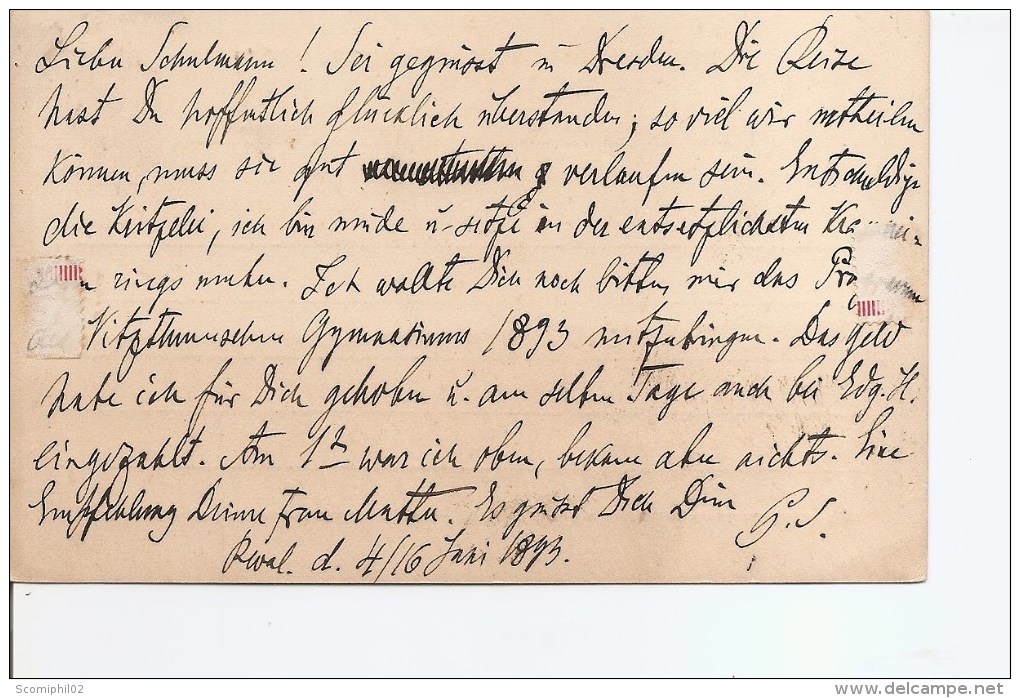 Lieber Schulmann! Sei gegrüsst in Dresden. Die Reise
hast Du hoffentlich glücklich überstanden; so viel wir urtheilen
können, muss sie gut verlaufen sein. Entschuldige
die Kritzelei, ich bin müde u. sitze in der entsetzlichsten
rings umher. Ich wollte Dich noch bitten, mir das Programm
des Vitzthumschen Gymnasiums 1893 mitzubringen. Das Geld
habe ich für Dich gehoben u. am selben Tage auch bei Edg. H.
eingezahlt. Am 1t war ich oben, bekam aber nichts. Eine
Empfehlung Deiner Frau Mutter. Es grüsst Dich Dein
G. S.
Reval. d. 4/16 Juni 1893.
Scomiphil02
delcampe.net